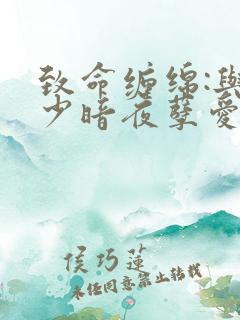 致命缠绵:与
少暗夜孽爱
侯巧莲
未经同意禁止转载